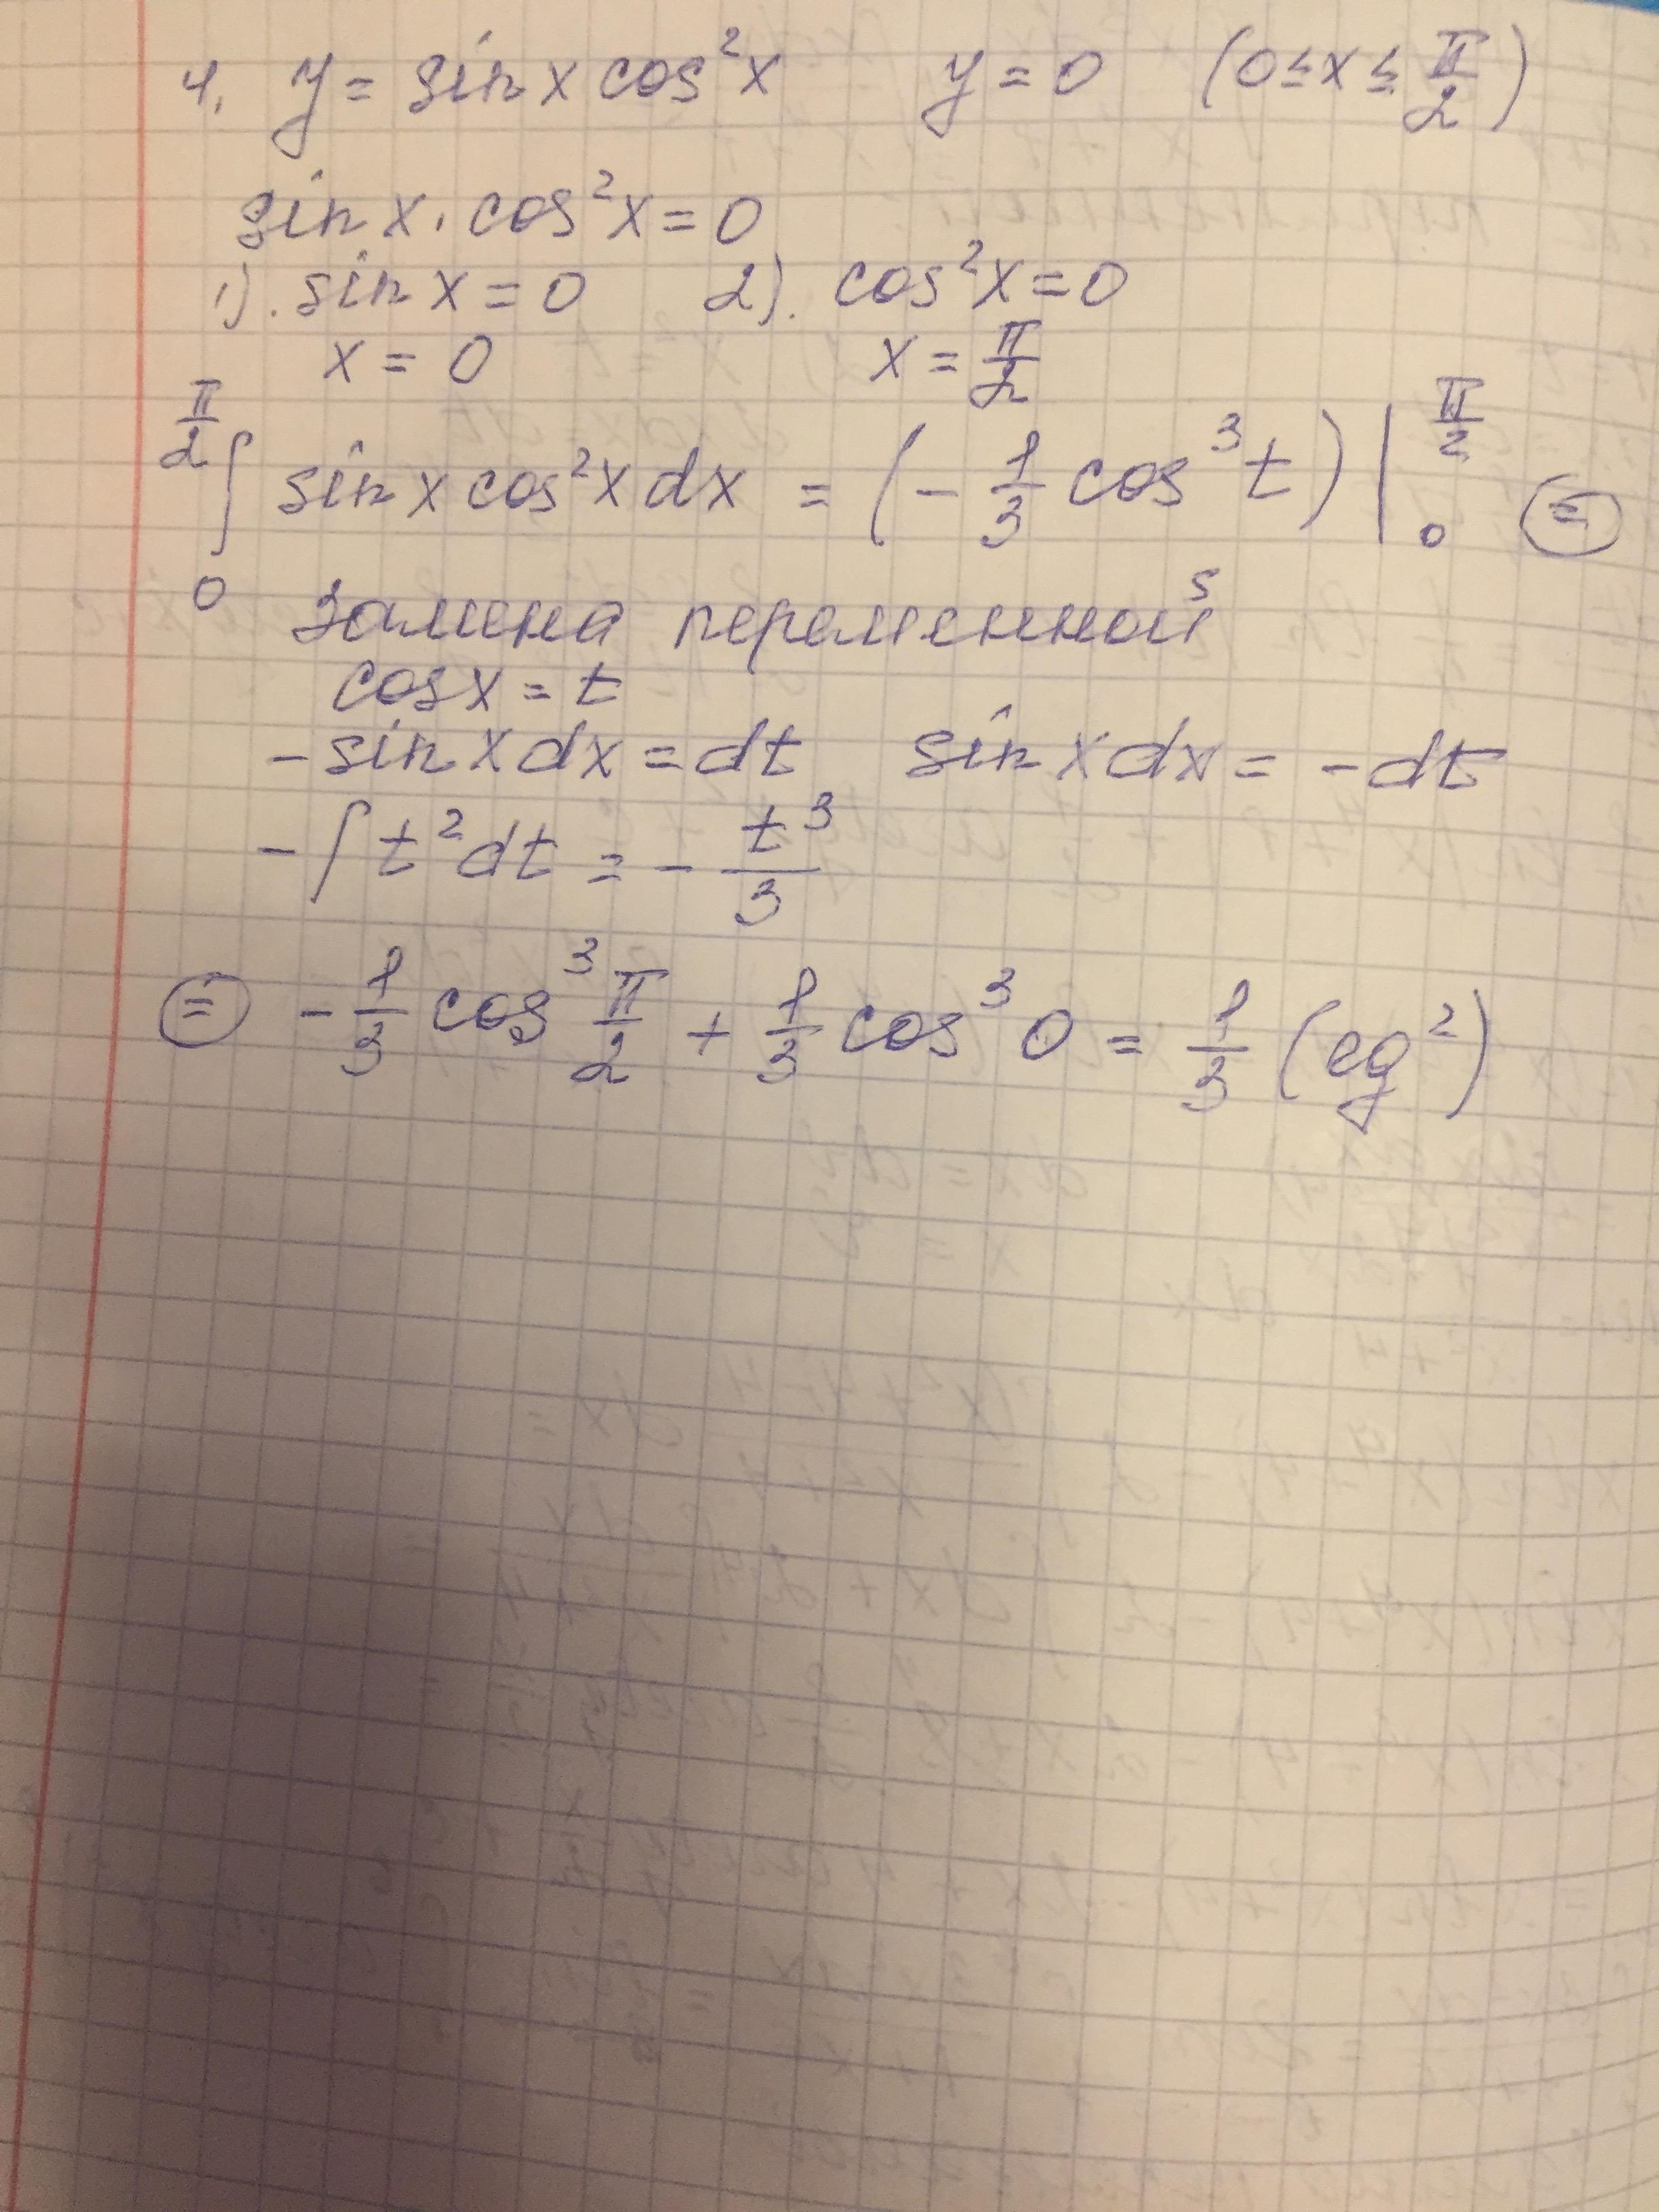 4. y = sin x cos²x y = 0 (0 ≤ x ≤ π/2)
sin x · cos²x = 0
1). sin x = 0 2). cos²x = 0
x = 0 x = π/2
∫₀^(π/2) sin x cos²x dx = (- 1/3 cos³t) |₀^(π/2) ⊜
замена переменной
cos x = t
- sin x dx = dt sin x dx = - dt
- ∫ t² dt = - t³/3
⊜ - 1/3 cos³ π/2 + 1/3 cos³ 0 = 1/3 (ед²)